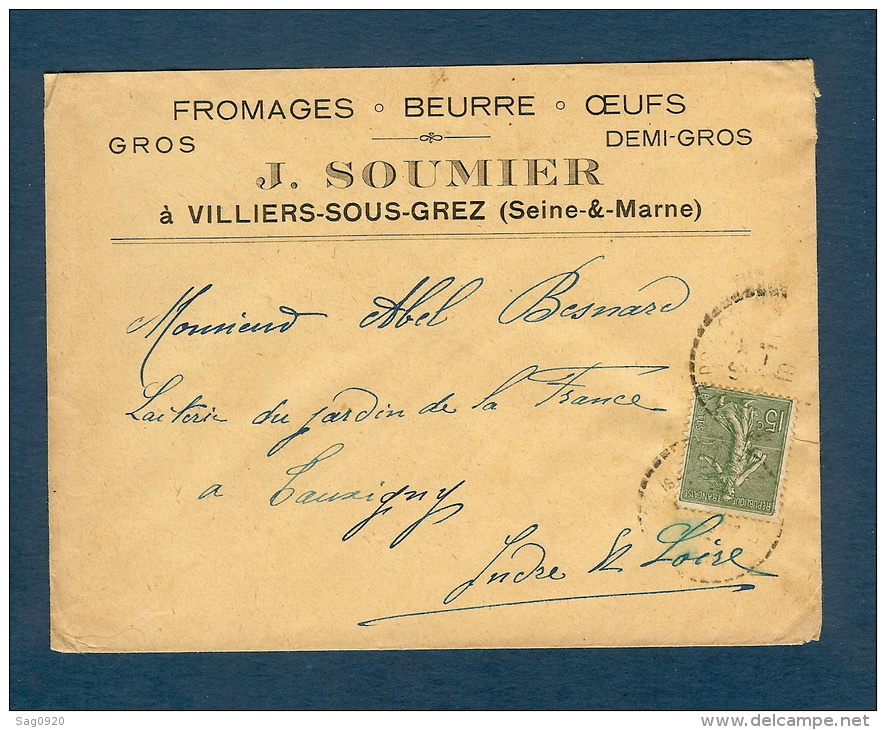 FROMAGES ∘ BEURRE ∘ ŒUFS
GROS DEMI-GROS
J. SOUMIER
à VILLIERS-SOUS-GREZ (Seine-&-Marne)
Monsieur Abel Besnard
Laiterie du jardin de la France
a Tauxigny
Indre & Loire
15c
REPUBLIQUE
FRANÇAISE
Sag0920
delcampe.net